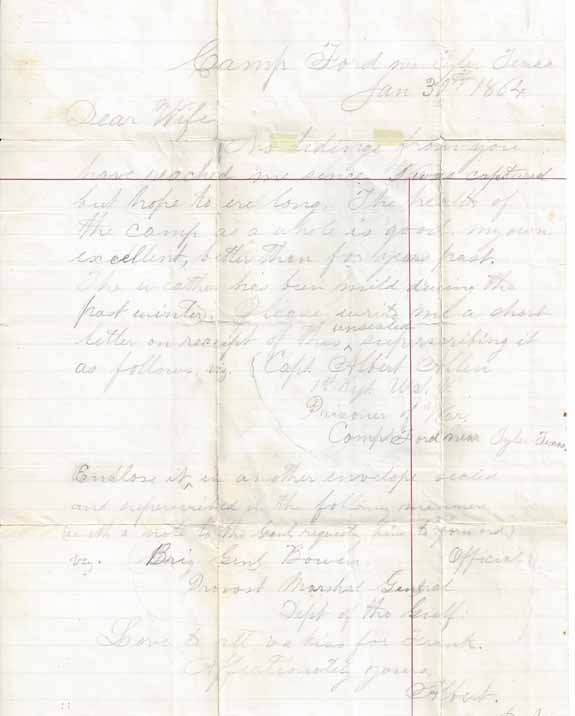 Camp Ford near Tyler Texas
Jan 30th 1864
Dear Wife
No tidings from you
have reached me since I was captured
but hope to ere long. The health of
the camp as a whole is good. my own
excellent, better than for years past.
The weather has been mild during the
past winter. Please write me a short
letter on receipt of this unsealed superscribing it
as follows, viz. { Capt. Albert Allen
1st Regt. U.S. V.
Prisoner of War.
Camp Ford near Tyler Texas.
Enclose it, in another envelope sealed
and superscribed in the following manner
with a note to the Genl. requesting him to forward)
viz. Brig Genl Bowen Official
Provost Marshal General
Dept of the Gulf.
Love to all & a kiss for Frank.
Affectionately yours,
Albert.